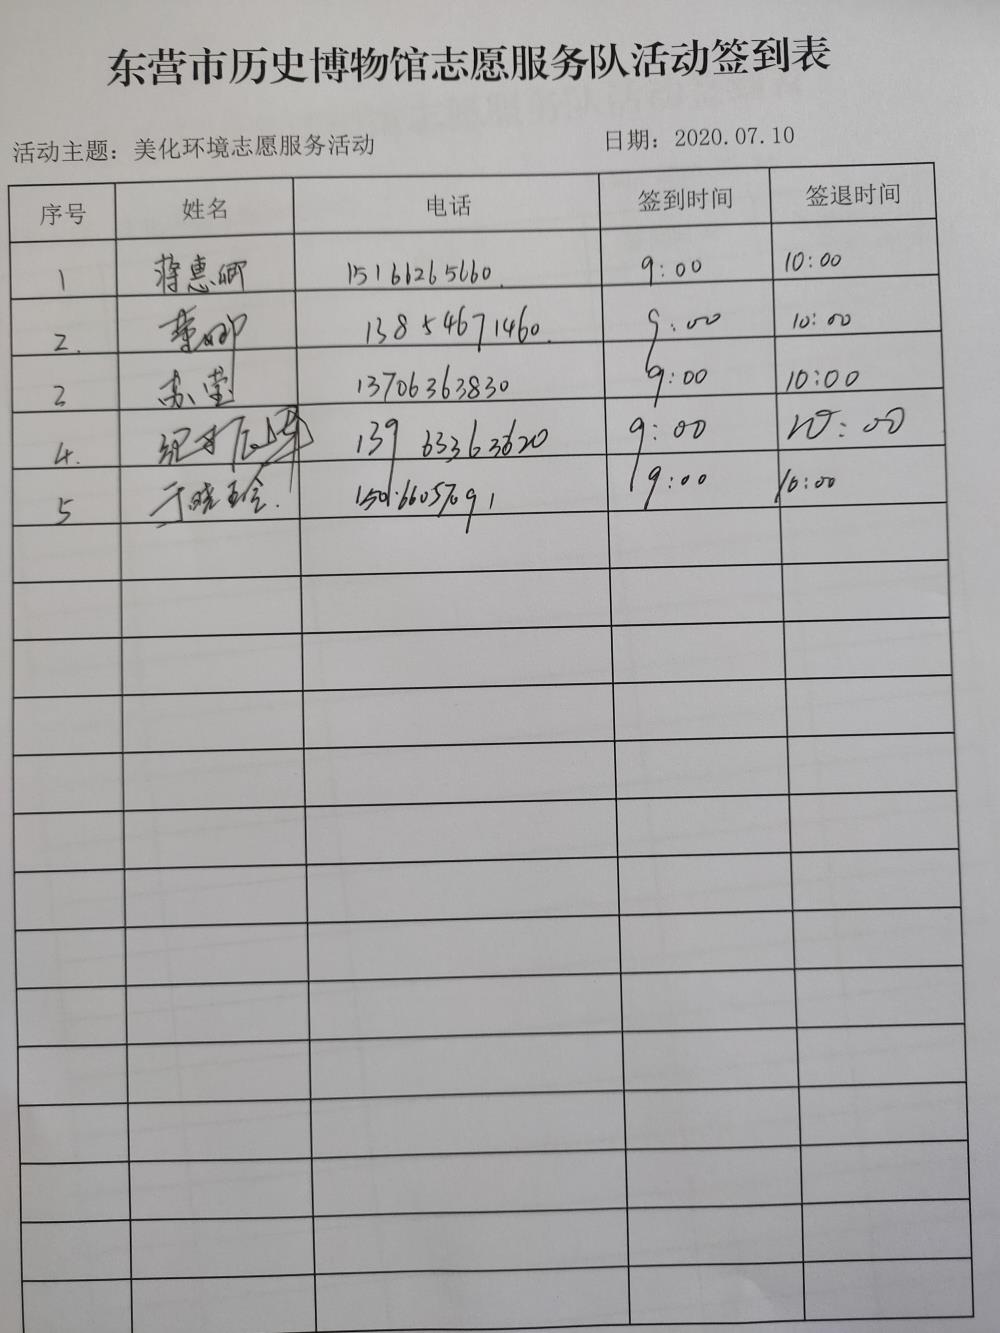 东营市历史博物馆志愿服务队活动签到表
活动主题：美化环境志愿服务活动 日期：2020.07.10
序号 姓名 电话 签到时间 签退时间
1 蒋惠卿 15166265660. 9:00 10:00
2. 董娜 13854671460. 9:00 10:00
2 苏莹 13706363830 9:00 10:00
4. 纪 139 63363620 9:00 10:00
5 于晓玲. 9:00 10:00